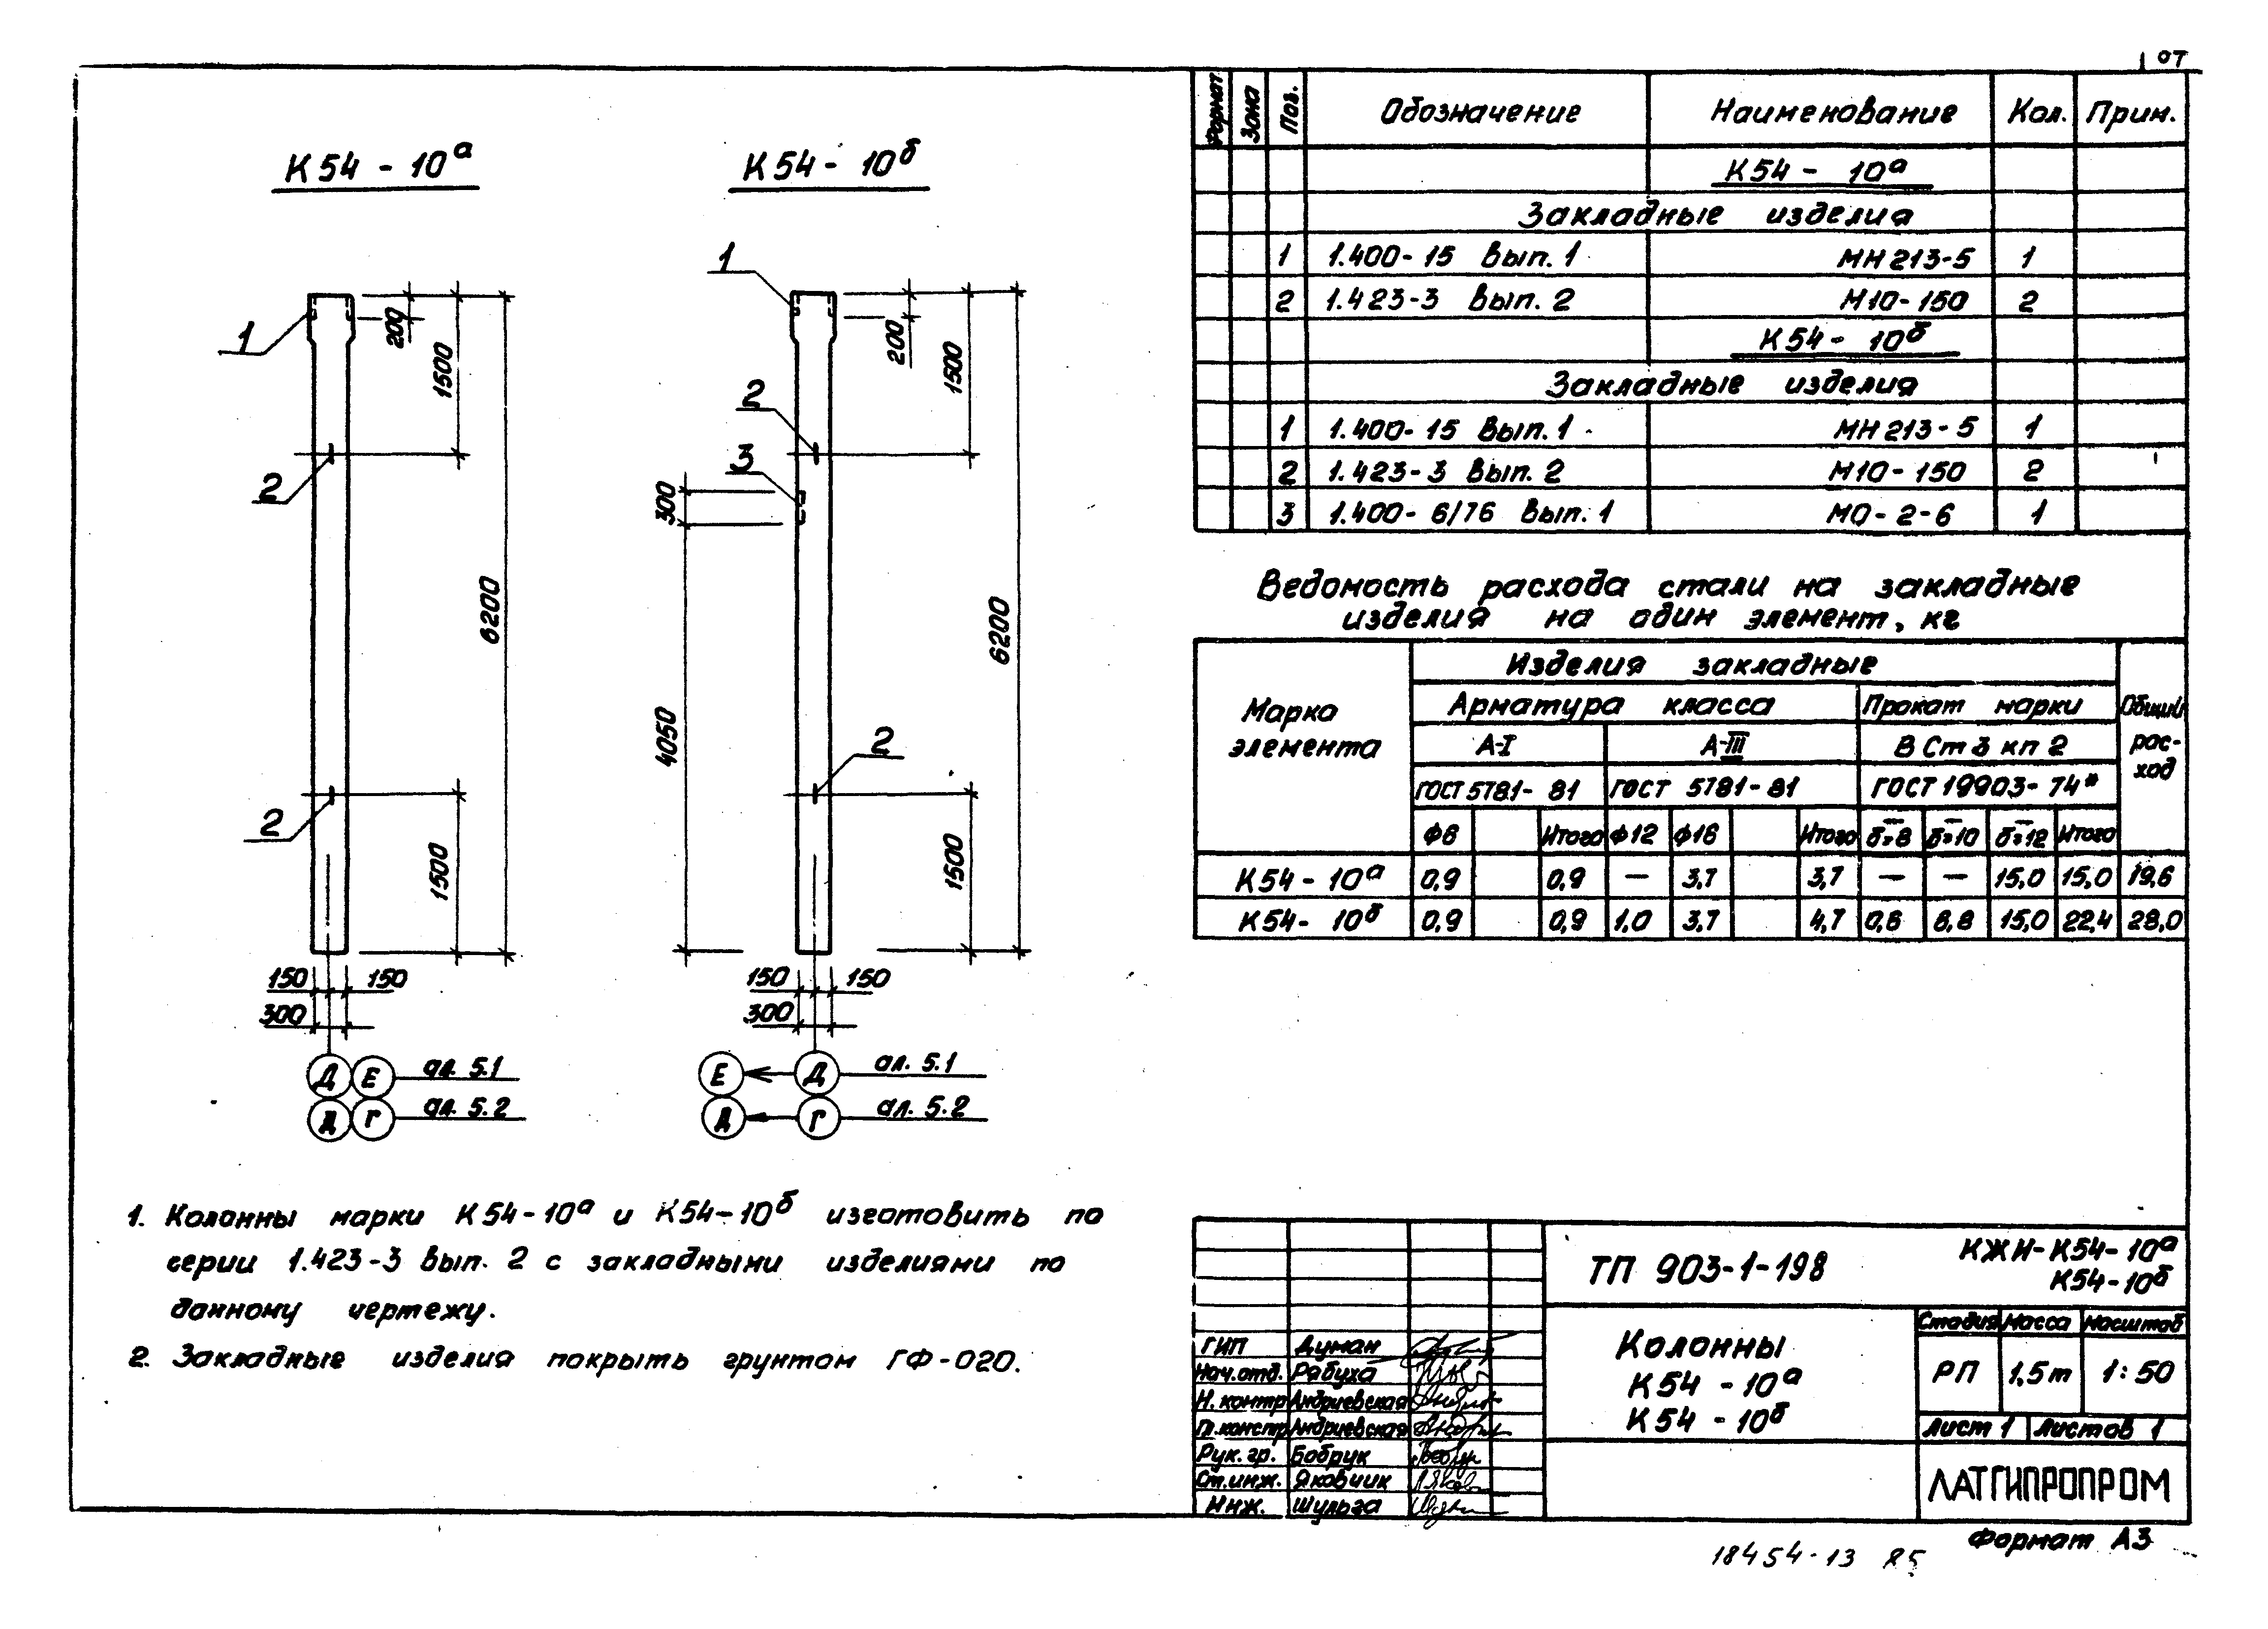 107
К54 - 10а
К54 - 10б
1
200
1500
2
6200
2
1500
150 150
300
Д Е ал. 5.1
Д Г ал. 5.2
1
200
1500
2
3
300
4050
6200
2
1500
150 150
300
Е Д ал. 5.1
Д Г ал. 5.2
1. Колонны марки К54-10а и К54-10б изготовить по
серии 1.423-3 вып. 2 с закладными изделиями по
данному чертежу.
2. Закладные изделия покрыть грунтом ГФ-020.
Формат Зона Поз. Обозначение Наименование Кол. Прим.
К54 - 10а
Закладные изделия
1 1.400-15 Вып. 1 МН213-5 1
2 1.423-3 Вып. 2 М10-150 2
К54 - 10б
Закладные изделия
1 1.400-15 Вып. 1 МН213-5 1
2 1.423-3 Вып. 2 М10-150 2
3 1.400-6/76 Вып. 1 МО-2-6 1
Ведомость расхода стали на закладные
изделия на один элемент, кг
Марка элемента Изделия закладные Общий рас-ход
Арматура класса Прокат марки
А-I А-III ВСт3кп2
ГОСТ 5781-81 ГОСТ 5781-81 ГОСТ 19903-74*
ф6 Итого ф12 ф16 Итого δ=8 δ=10 δ=12 Итого
К54 - 10а 0,9 0,9 — 3,7 3,7 — — 15,0 15,0 19,6
К54 - 10б 0,9 0,9 1,0 3,7 4,7 0,6 8,8 15,0 22,4 28,0
ТП 903-1-198 КЖИ-К54-10а
К54-10б
Колонны
К54 - 10а
К54 - 10б
Стадия Масса Масштаб
РП 1,5т 1:50
Лист 1 Листов 1
ЛАТГИПРОПРОМ
ГИП Думан
Нач.отд. Рябуха
Н.контр Андриевская
Гл.констр Андриевская
Рук.гр. Бобрук
Ст.инж. Яковчик
Инж. Шульга
Формат А3
18454-13 85